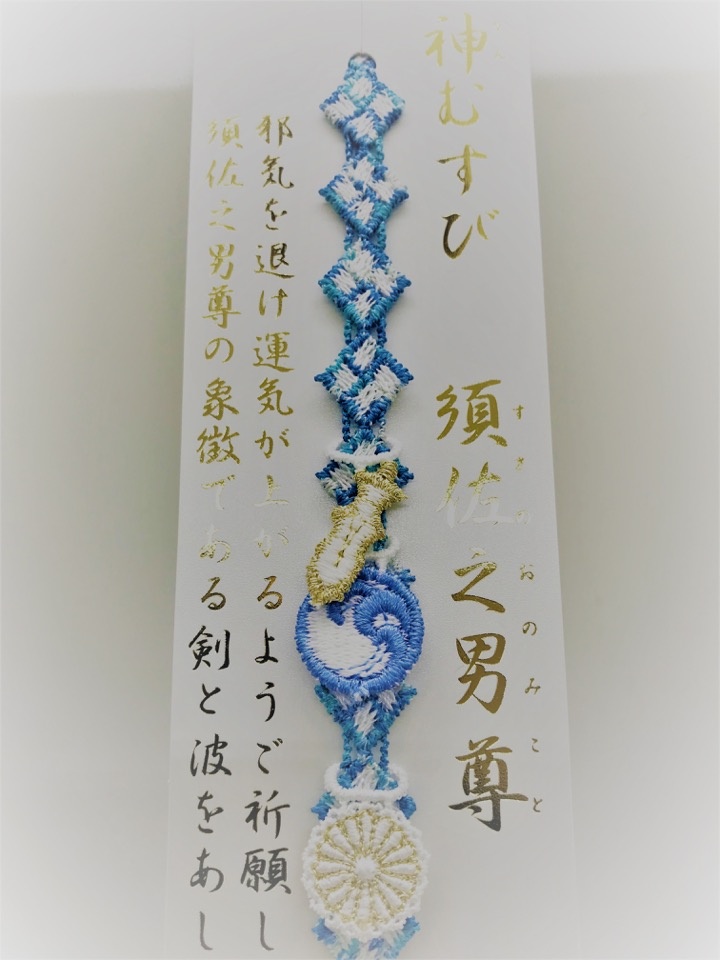 神むすび 須佐之男尊
すさのおのみこと
邪気を退け運気が上がるようご祈願し
須佐之男尊の象徴である剣と波をあし